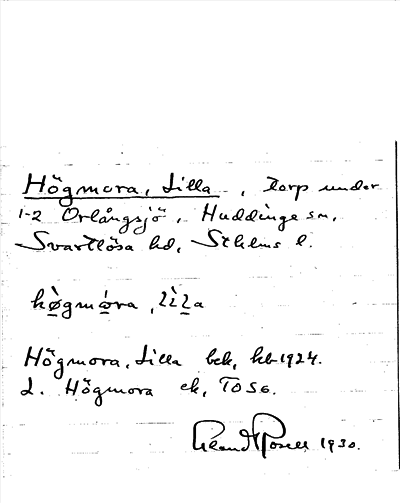 Högmora, Lilla , Torp under
1-2 Orlångsjö, Huddinge sn,
Svartlösa hd, Sthlms l.
hø̀gmóra, lìla
Högmora, Lilla bck, kb 1924.
L. Högmora ek, TO56.
1930.